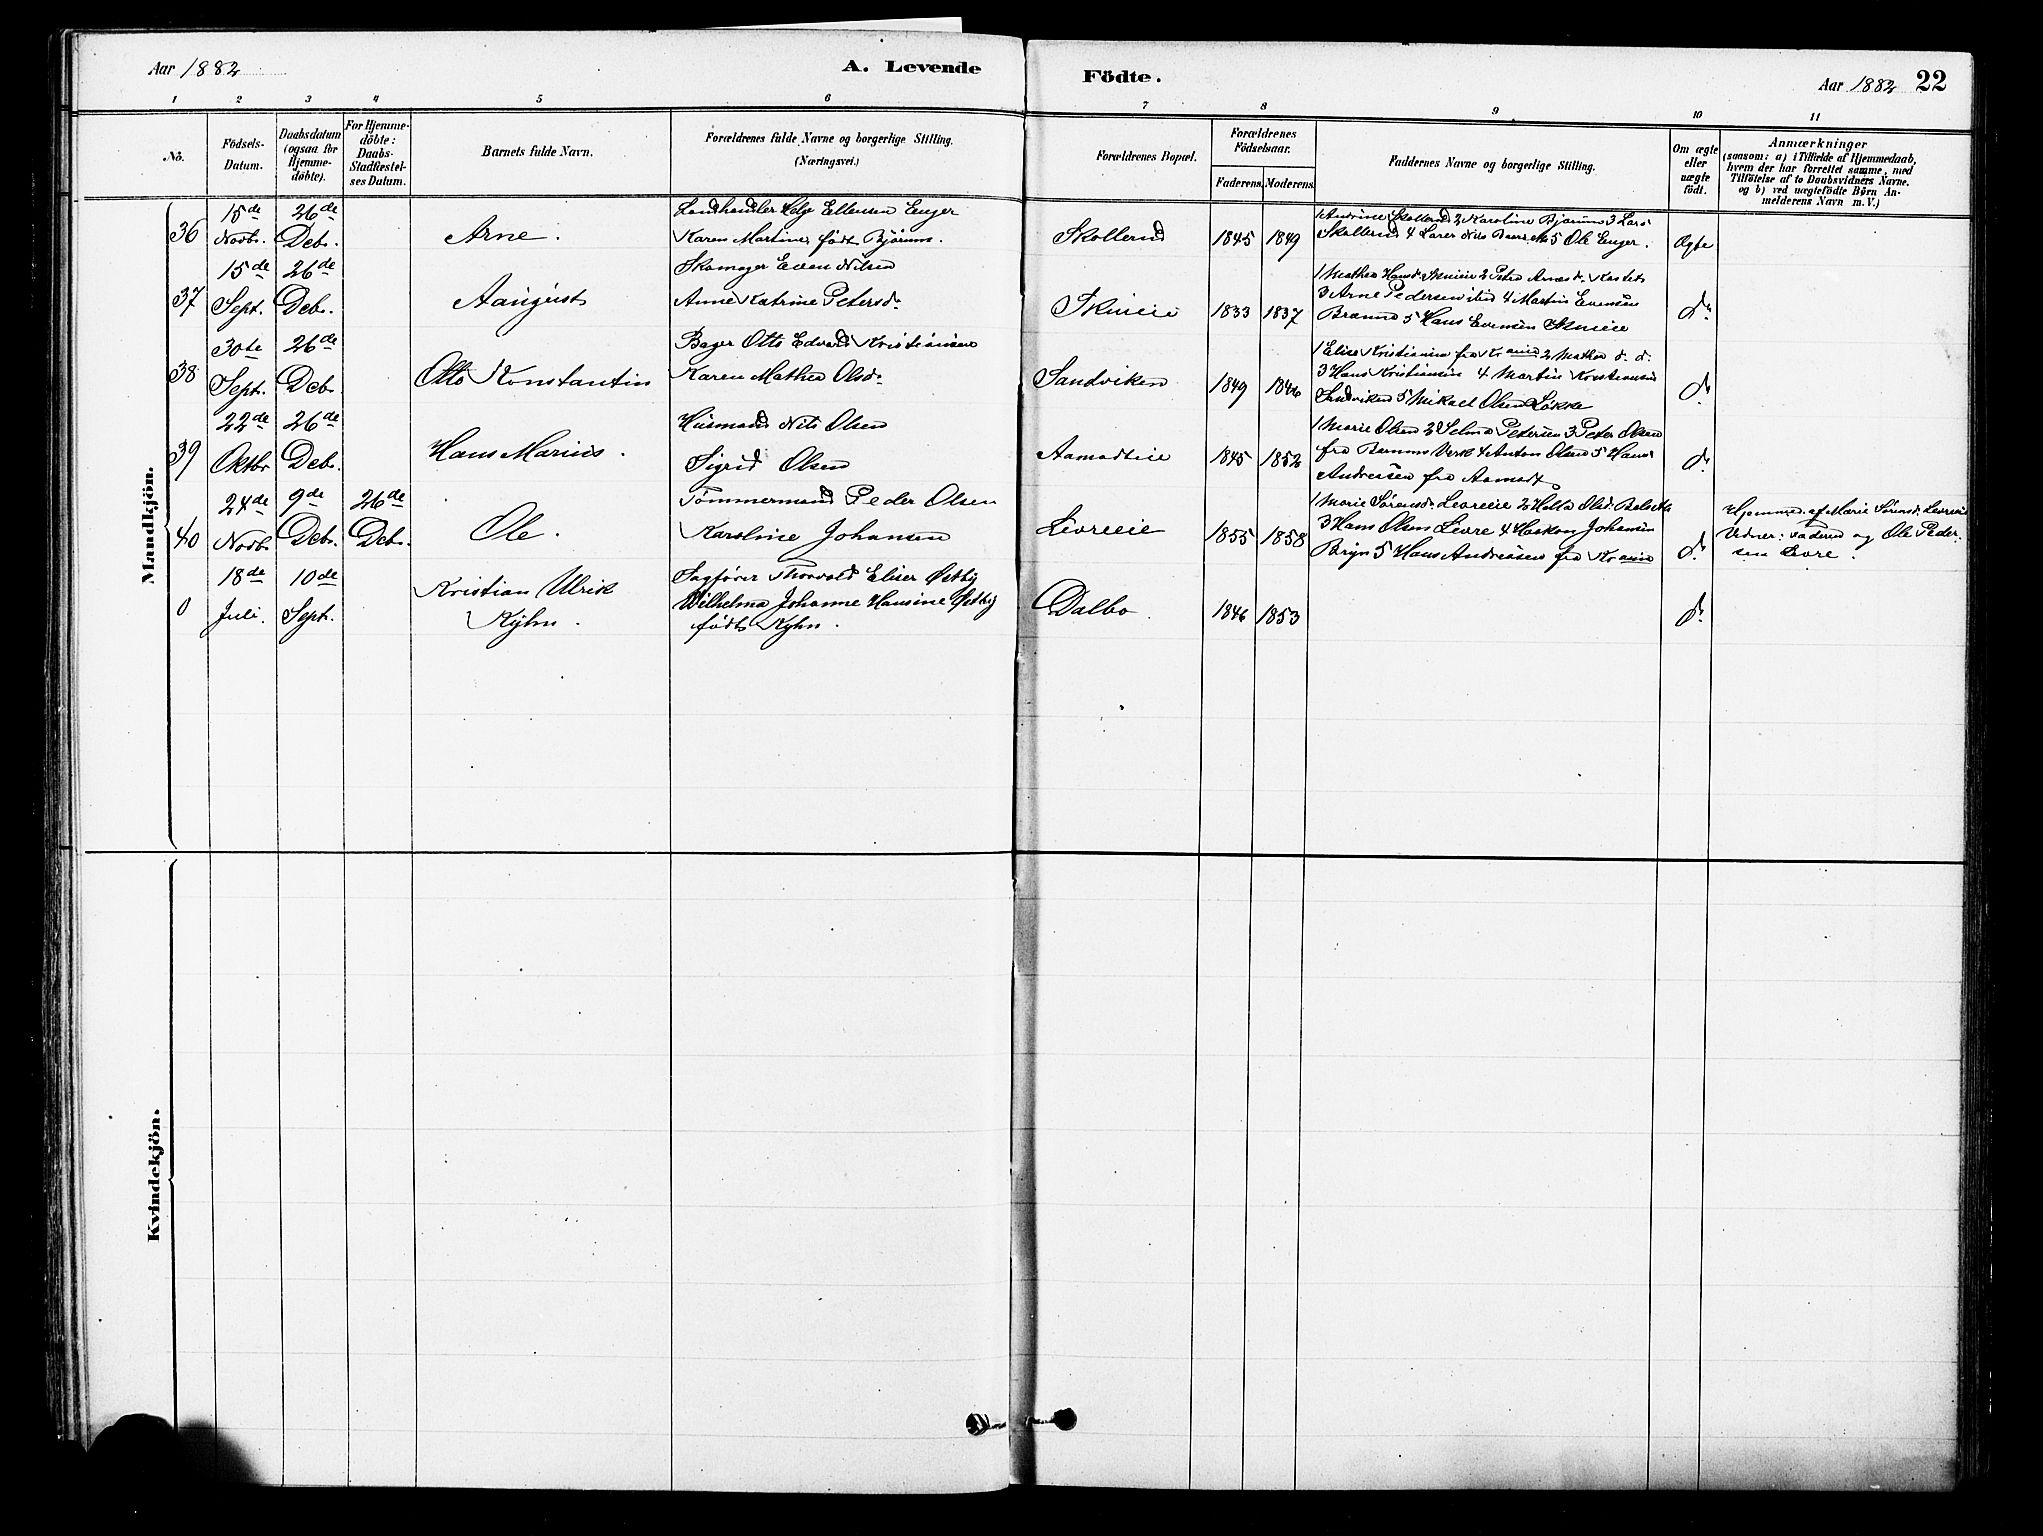 Aar 1882
A. Levende
Födte.
Aar 1882
22
1 2 3 4 5 6 7 8 9 10 11
No.
Födsels-
Datum.
Daabsdatum
(ogsaa for
Hjemme-
döbte).
For Hjemme-
döbte:
Daabs-
Stadfæstel-
ses Datum.
Barnets fulde Navn.
Forældrenes fulde Navne og borgerlige Stilling.
(Næringsvei.)
Forældrenes Bopæl.
Forældrenes
Födselsaar.
Faderens. Moderens.
Faddernes Navne og borgerlige Stilling.
Om ægte
eller
uægte
födt.
Anmærkninger
(saasom: a) i Tilfælde af Hjemmedaab,
hvem der har forrettet samme, med
Tilföielse af to Daabsvidners Navne,
og b) ved uægtefödte Börn An-
melderens Navn m. V.)
Mandkjön.
36
15de
Novbr.
26de
Debr.
Arne.
Landhandler Helge Ellensen Enger
Karen Martine født Bjørum.
Skollerud
1845 1849
Skollerud 4 Lærer Nils 5 Ole Enger.
Ægte
37
15de
Sept.
26de
Debr.
Aaugust
Skomager Even Nilsen
Anne Katrine Petersd.
Skuieie
1833 1837
1 Mathea Hansd. Skuieie 2 Petra Arnesd.
3 Arne Pedersen 4 Martin Evensen
5 Hans Evensen Skuieie
do
38
30te
Sept.
26de
Debr.
Otto Konstantin
Bager Otto Edvard Kristiansen
Karen Mathea Olsd.
Sandviken
1849 1846
1 Elise Kristiansen fra Krania 2 Mathea d. d.
3 Hans Kristiansen 4 Martin Kristiansen
Sandviken 5 Mikael Olsen Løkke
do
39
22de
Oktbr
26de
Debr.
Hans Marius.
Husmand Nils Olsen
Sigrid Olsen
Aamodteie
1845 1852
1 Marie Olsen 2 Selma Petersen 3 Peter Olsen
fra Bærums Verk 4 Anton Olsen 5 Hans
Andresen fra Aamodt.
do
40
24de
Novbr
9de
Debr.
26de
Debr.
Ole.
Tømmermand Peder Olsen
Karoline Johansen
Levreeie
1855 1858
1 Marie Sørensd. Levreeie 2 Olsd.
3 Hans Olsen Levre 4 Haakon Johansen
Bryn 5 Hans Andresen fra Krania
do
Hjemmed. af Marie Sørensd. Levreeie
Vidner: Faderen og Ole Peder-
sen Levre.
0
18de
Juli.
10de
Sept.
Kristian Ulrik
Kyhn.
Sagfører Thorvald Eliser Østby
Wilhelma Johanne Hansine Østby
født Kyhn.
Dalbo.
1846 1853
do
Kvindekjön.